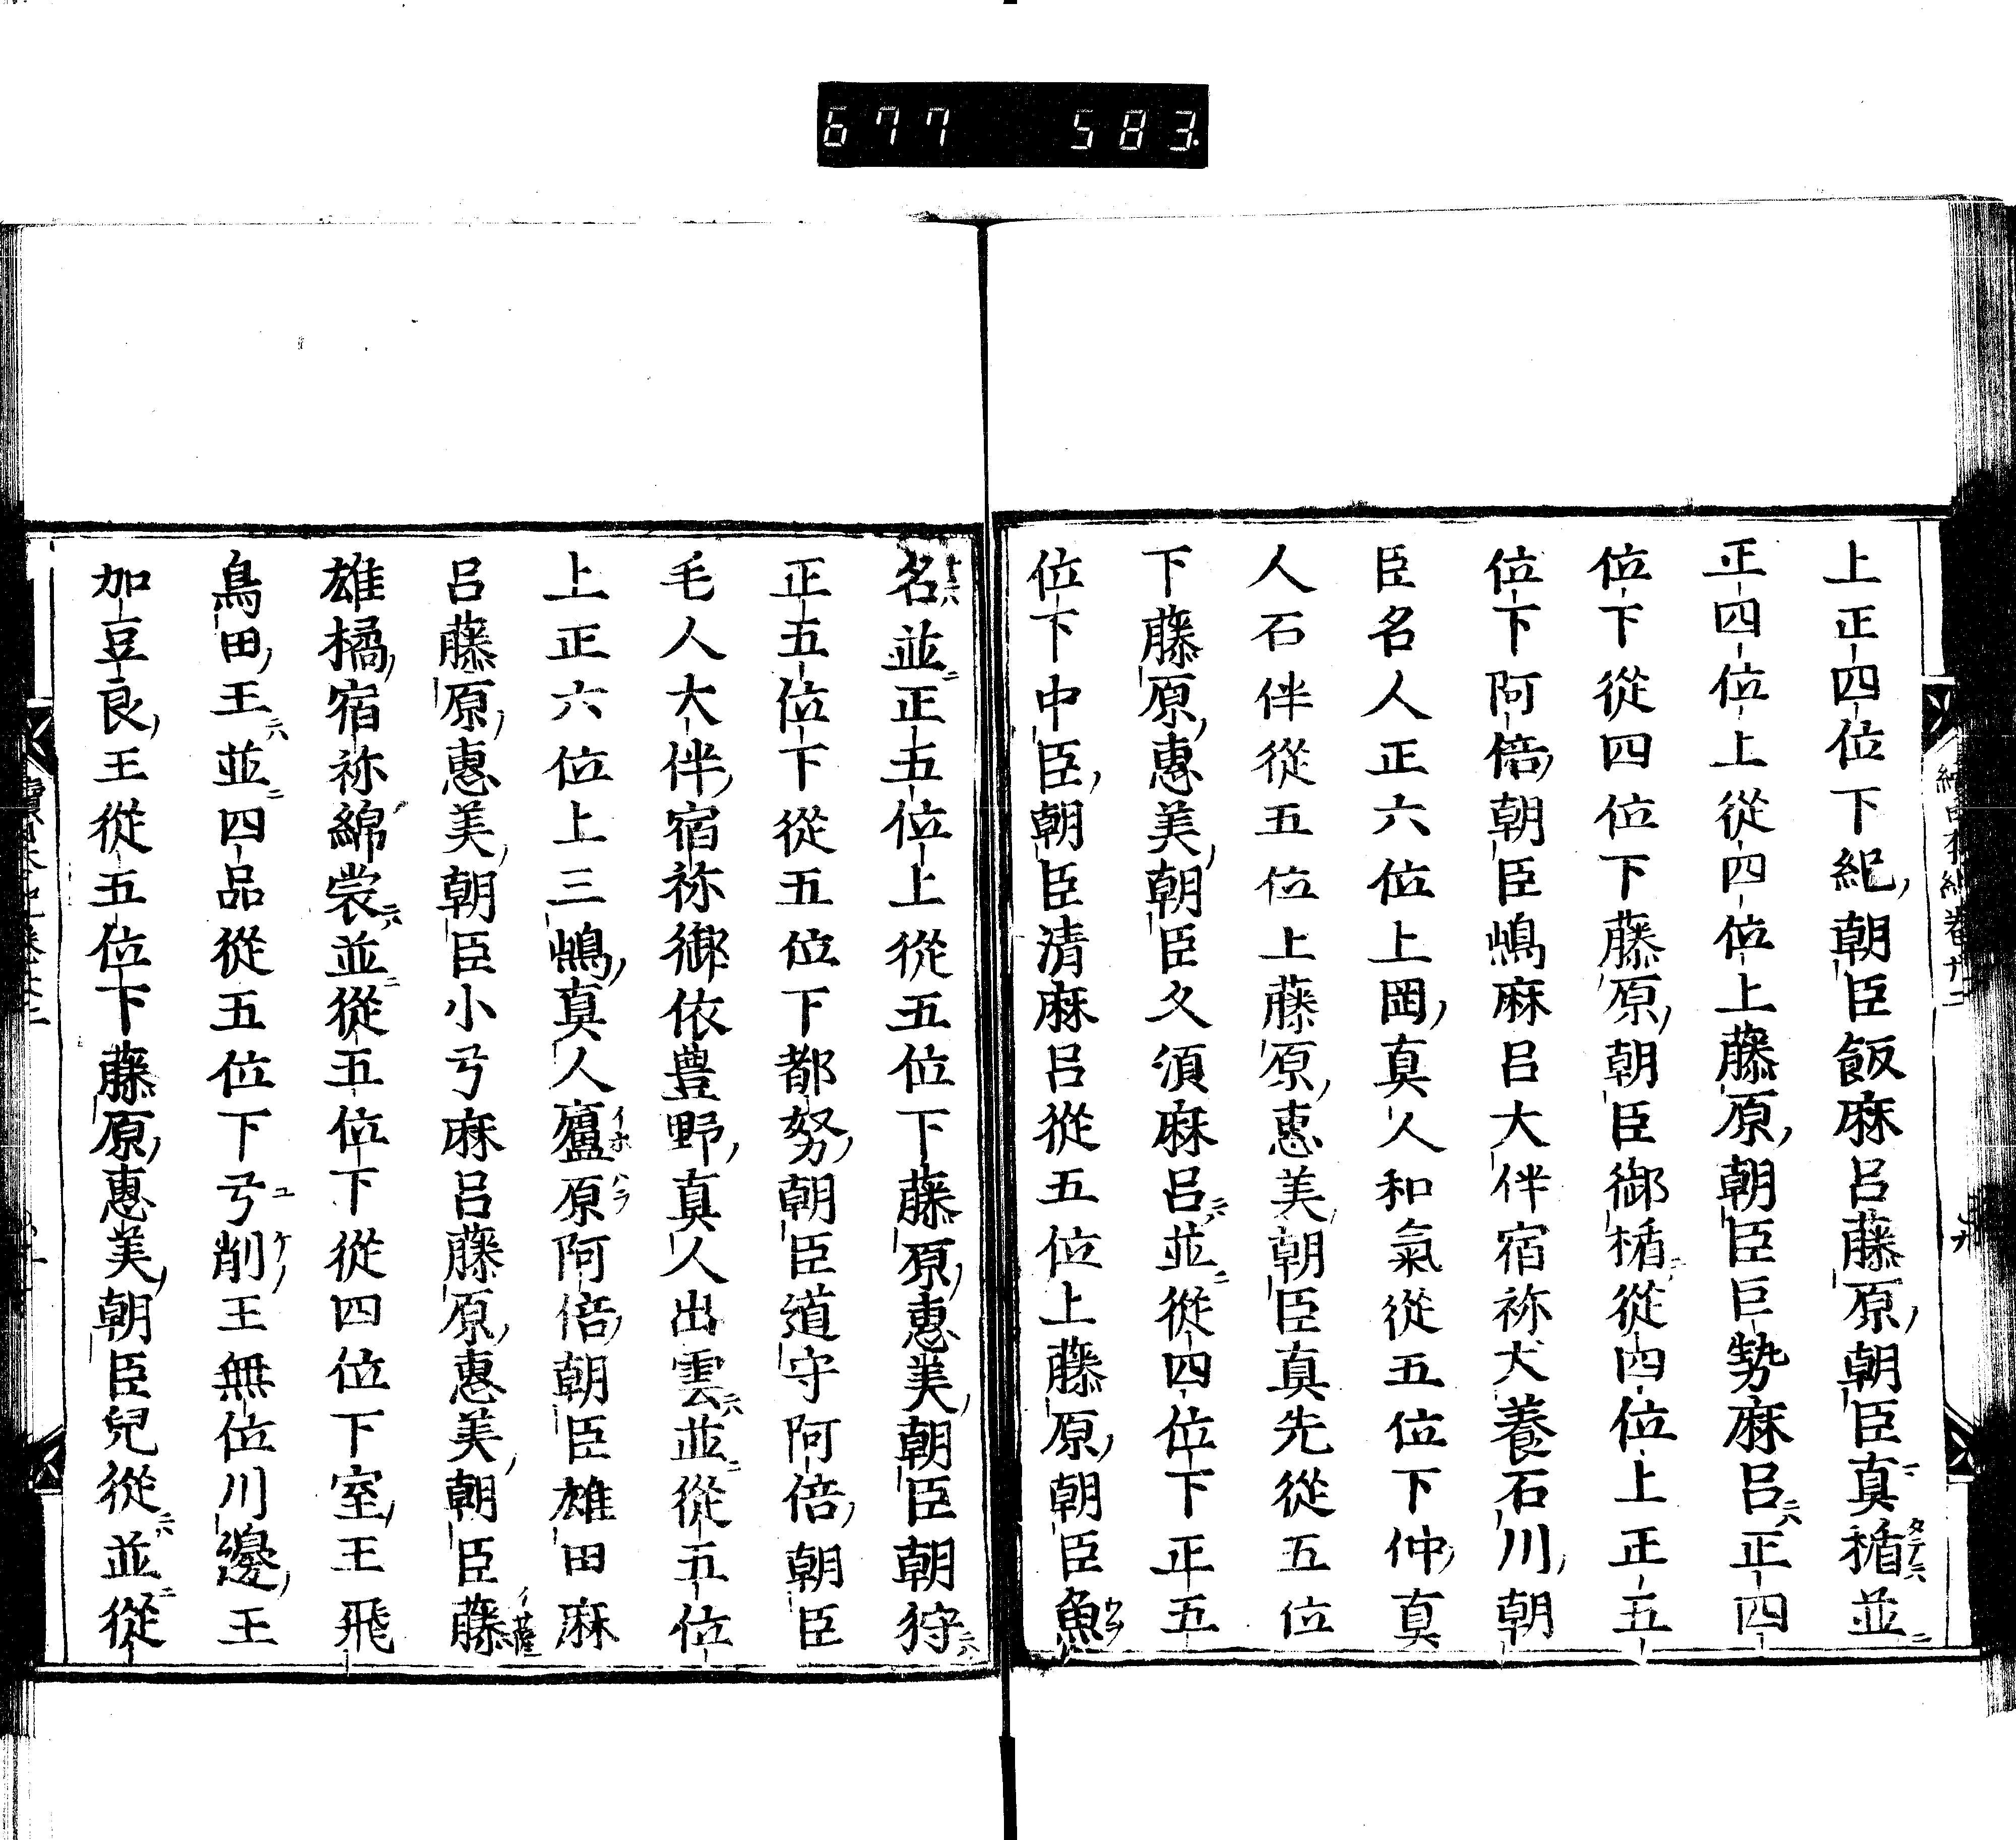 677 583.
上正四位下紀朝臣飯麻呂藤原朝臣真楯並
正四位上從四位上藤原朝臣巨勢麻呂正四
位下從四位下藤原朝臣御楯從四位上正五
位下阿倍朝臣嶋麻呂大伴宿祢犬養石川朝
臣名人正六位上岡真人和氣從五位下仲真
人石伴從五位上藤原惠美朝臣真先從五位
下藤原惠美朝臣久須麻呂並從四位下正五
位下中臣朝臣清麻呂從五位上藤原朝臣魚
名並正五位上從五位下藤原惠美朝臣朝狩
正五位下從五位下都努朝臣道守阿倍朝臣
毛人大伴宿祢御依豊野真人出雲並從五位
上正六位上三嶋真人廬原阿倍朝臣雄田麻
呂藤原惠美朝臣小弓麻呂藤原惠美朝臣藤
雄橘宿祢綿裳並從五位下從四位下室王飛
鳥田王並四品從五位下弓削王無位川邊王
加豆良王從五位下藤原惠美朝臣兒從並從